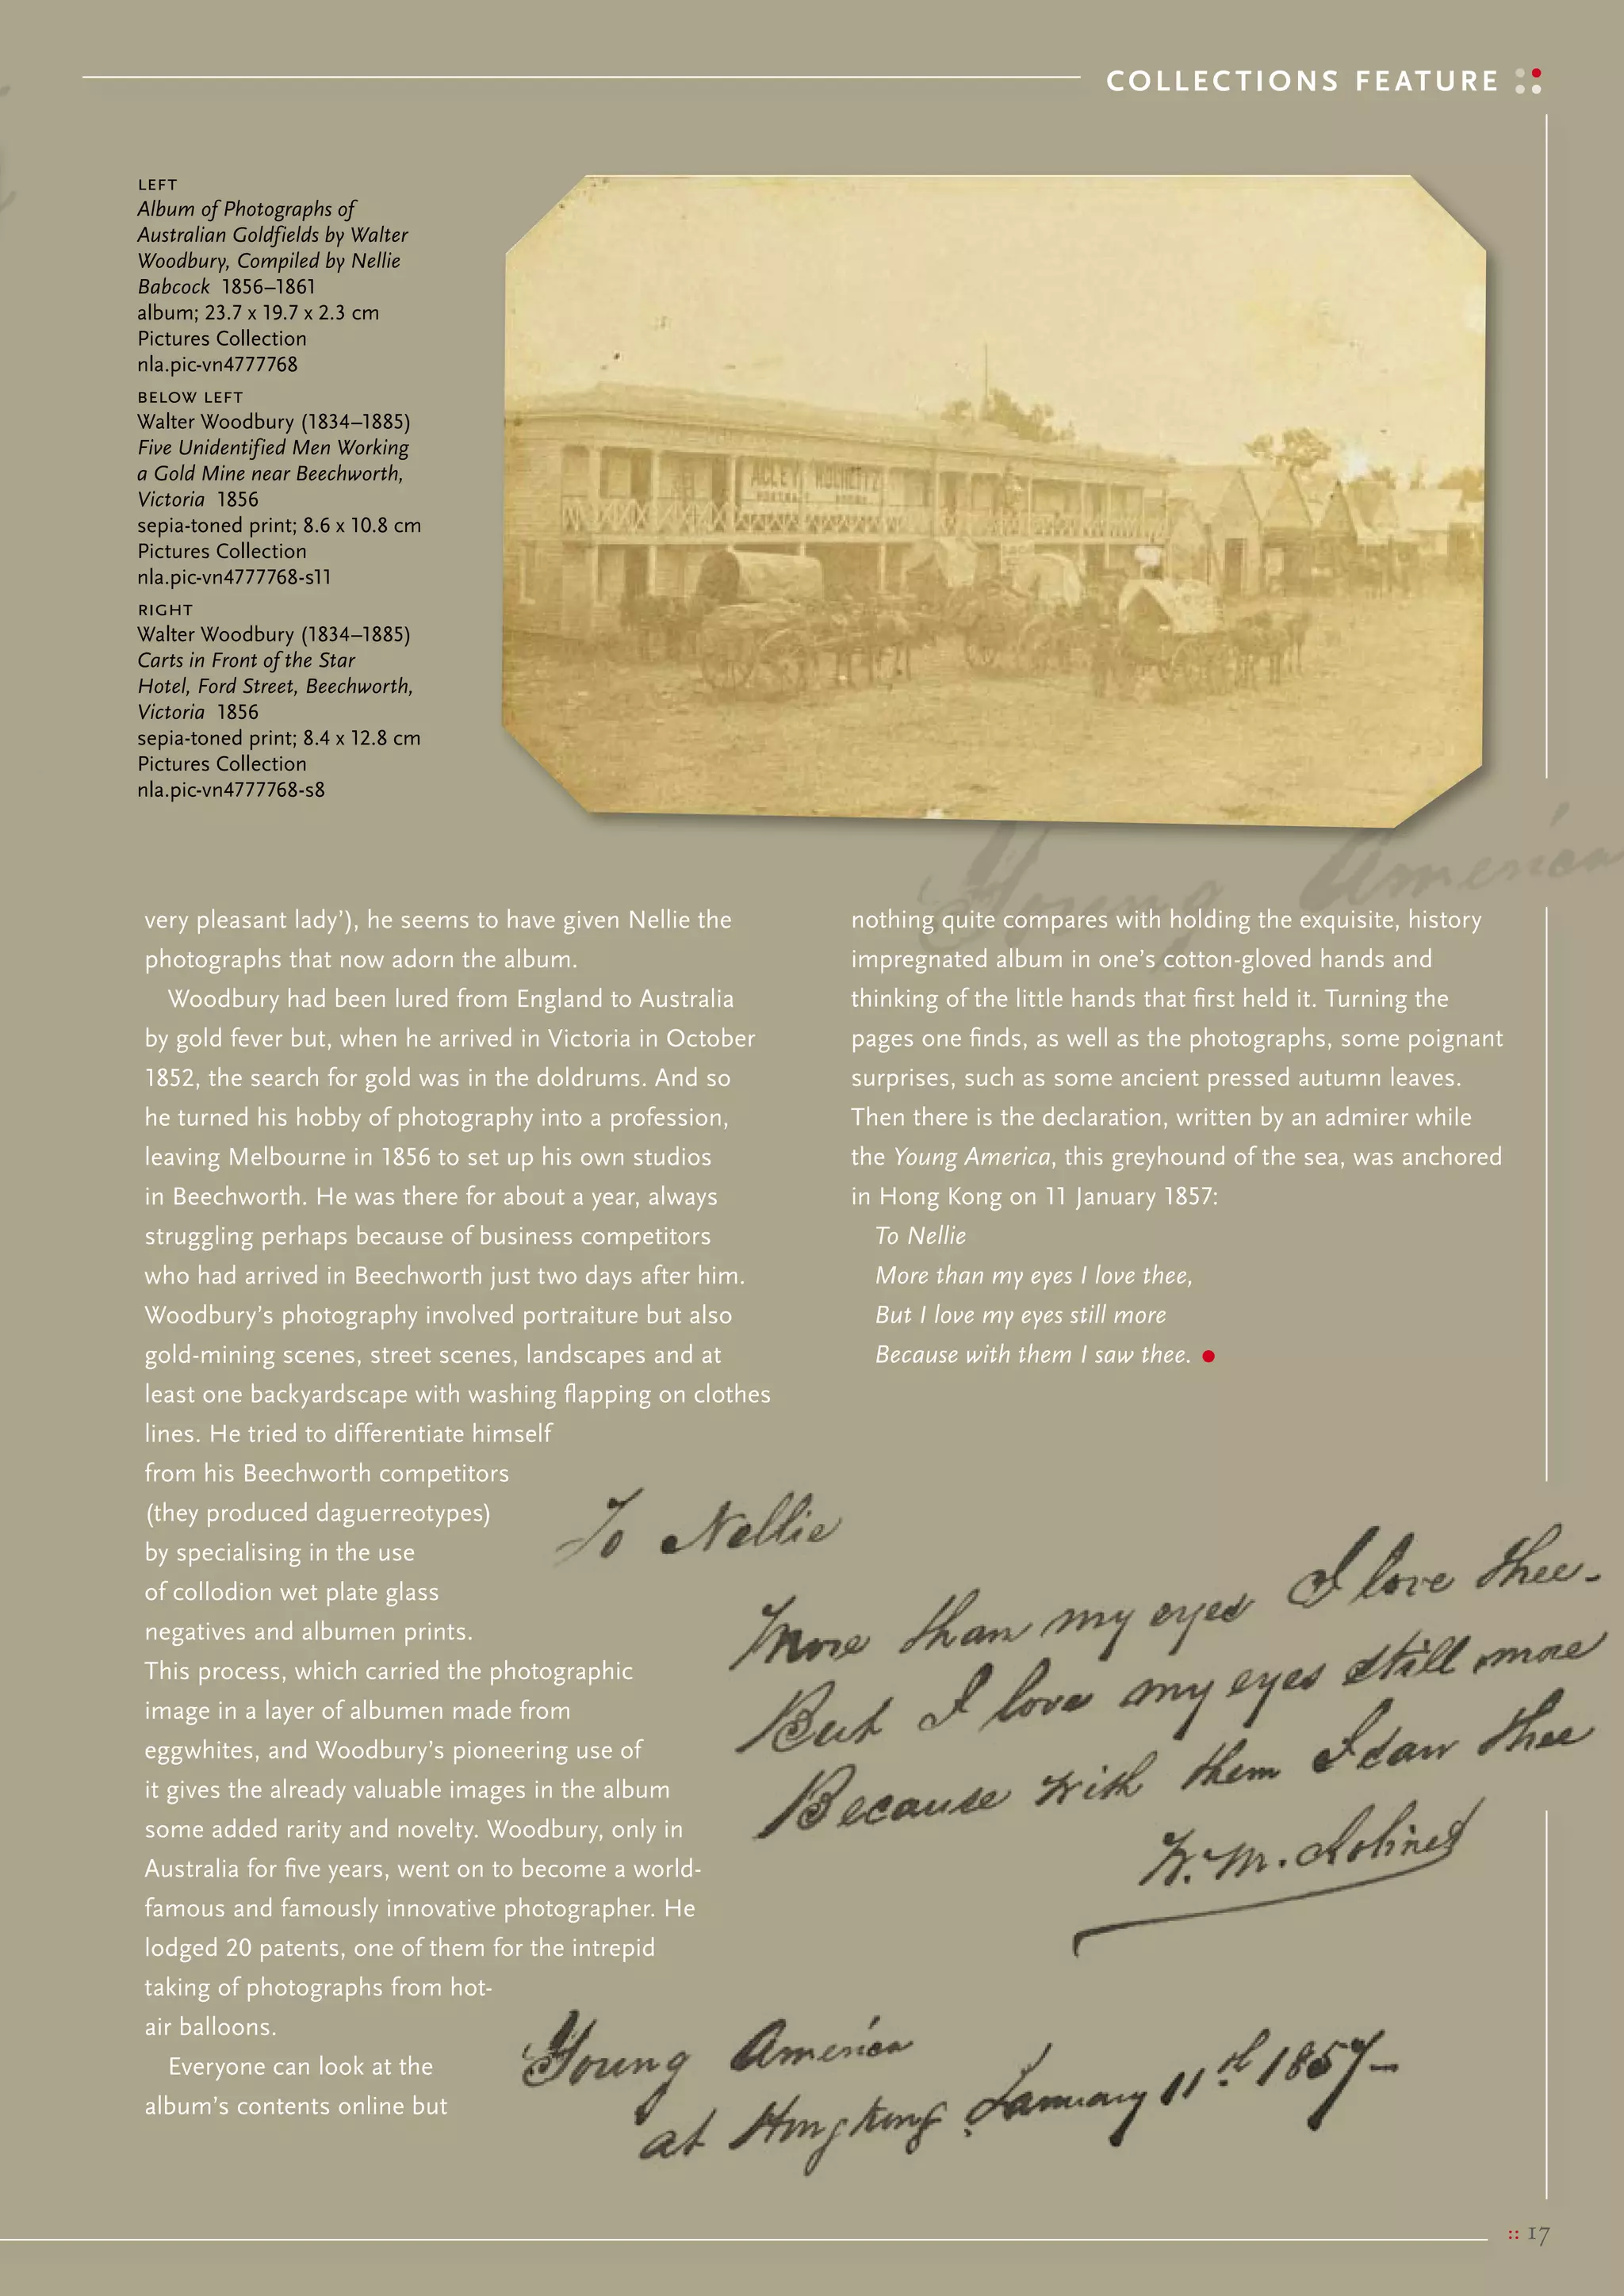 COLLECTIONS FEATURE
LEFT
Album of Photographs of
Australian Goldfields by Walter
Woodbury, Compiled by Nellie
Babcock 1856–1861
album; 23.7 x 19.7 x 2.3 cm
Pictures Collection
nla.pic-vn4777768
BELOW LEFT
Walter Woodbury (1834–1885)
Five Unidentified Men Working
a Gold Mine near Beechworth,
Victoria 1856
sepia-toned print; 8.6 x 10.8 cm
Pictures Collection
nla.pic-vn4777768-s11
RIGHT
Walter Woodbury (1834–1885)
Carts in Front of the Star
Hotel, Ford Street, Beechworth,
Victoria 1856
sepia-toned print; 8.4 x 12.8 cm
Pictures Collection
nla.pic-vn4777768-s8
Young America
very pleasant lady’), he seems to have given Nellie the
photographs that now adorn the album.
Woodbury had been lured from England to Australia
by gold fever but, when he arrived in Victoria in October
1852, the search for gold was in the doldrums. And so
he turned his hobby of photography into a profession,
leaving Melbourne in 1856 to set up his own studios
in Beechworth. He was there for about a year, always
struggling perhaps because of business competitors
who had arrived in Beechworth just two days after him.
Woodbury’s photography involved portraiture but also
gold-mining scenes, street scenes, landscapes and at
least one backyardscape with washing flapping on clothes
lines. He tried to differentiate himself
from his Beechworth competitors
(they produced daguerreotypes)
by specialising in the use
of collodion wet plate glass
negatives and albumen prints.
This process, which carried the photographic
image in a layer of albumen made from
eggwhites, and Woodbury’s pioneering use of
it gives the already valuable images in the album
some added rarity and novelty. Woodbury, only in
Australia for five years, went on to become a world-
famous and famously innovative photographer. He
lodged 20 patents, one of them for the intrepid
taking of photographs from hot-
air balloons.
Everyone can look at the
album’s contents online but
nothing quite compares with holding the exquisite, history
impregnated album in one’s cotton-gloved hands and
thinking of the little hands that first held it. Turning the
pages one finds, as well as the photographs, some poignant
surprises, such as some ancient pressed autumn leaves.
Then there is the declaration, written by an admirer while
the Young America, this greyhound of the sea, was anchored
in Hong Kong on 11 January 1857:
To Nellie
More than my eyes I love thee,
But I love my eyes still more
Because with them I saw thee.
To Nellie
More than my eyes I love thee-
But I love my eyes still more
Because with them I saw thee
Young America
at Hongkong January 11th 1857-
:: 17